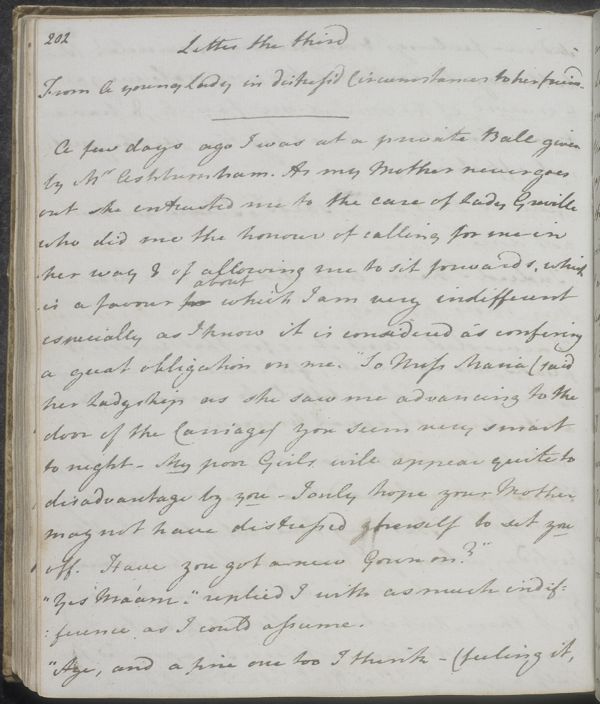 202
Letter the third
From a young Lady in distress'd Circumstances to her freind.
A few days ago I was at a private Ball given
by Mr Ashburnham. As my Mother never goes
out she entrusted me to the care of Lady Greville
who did me the honour of calling for me in
her way & of allowing me to sit forwards, which
about
is a favour for which I am very indifferent
especially as I know it is considered as confering
a great obligation on me. "So Miss Maria (said
her Ladyship as she saw me advancing to the
door of the Carriage) you seem very smart
to night - My poor Girls will appear quite to
disadvantage by you - I only hope your Mother
may not have distressed herself to set you
off. Have you got a new Gown on?"
"Yes Ma'am." replied I with as much indif=
=ference as I could assume.
"Aye, and a fine one too I think - (feeling it,